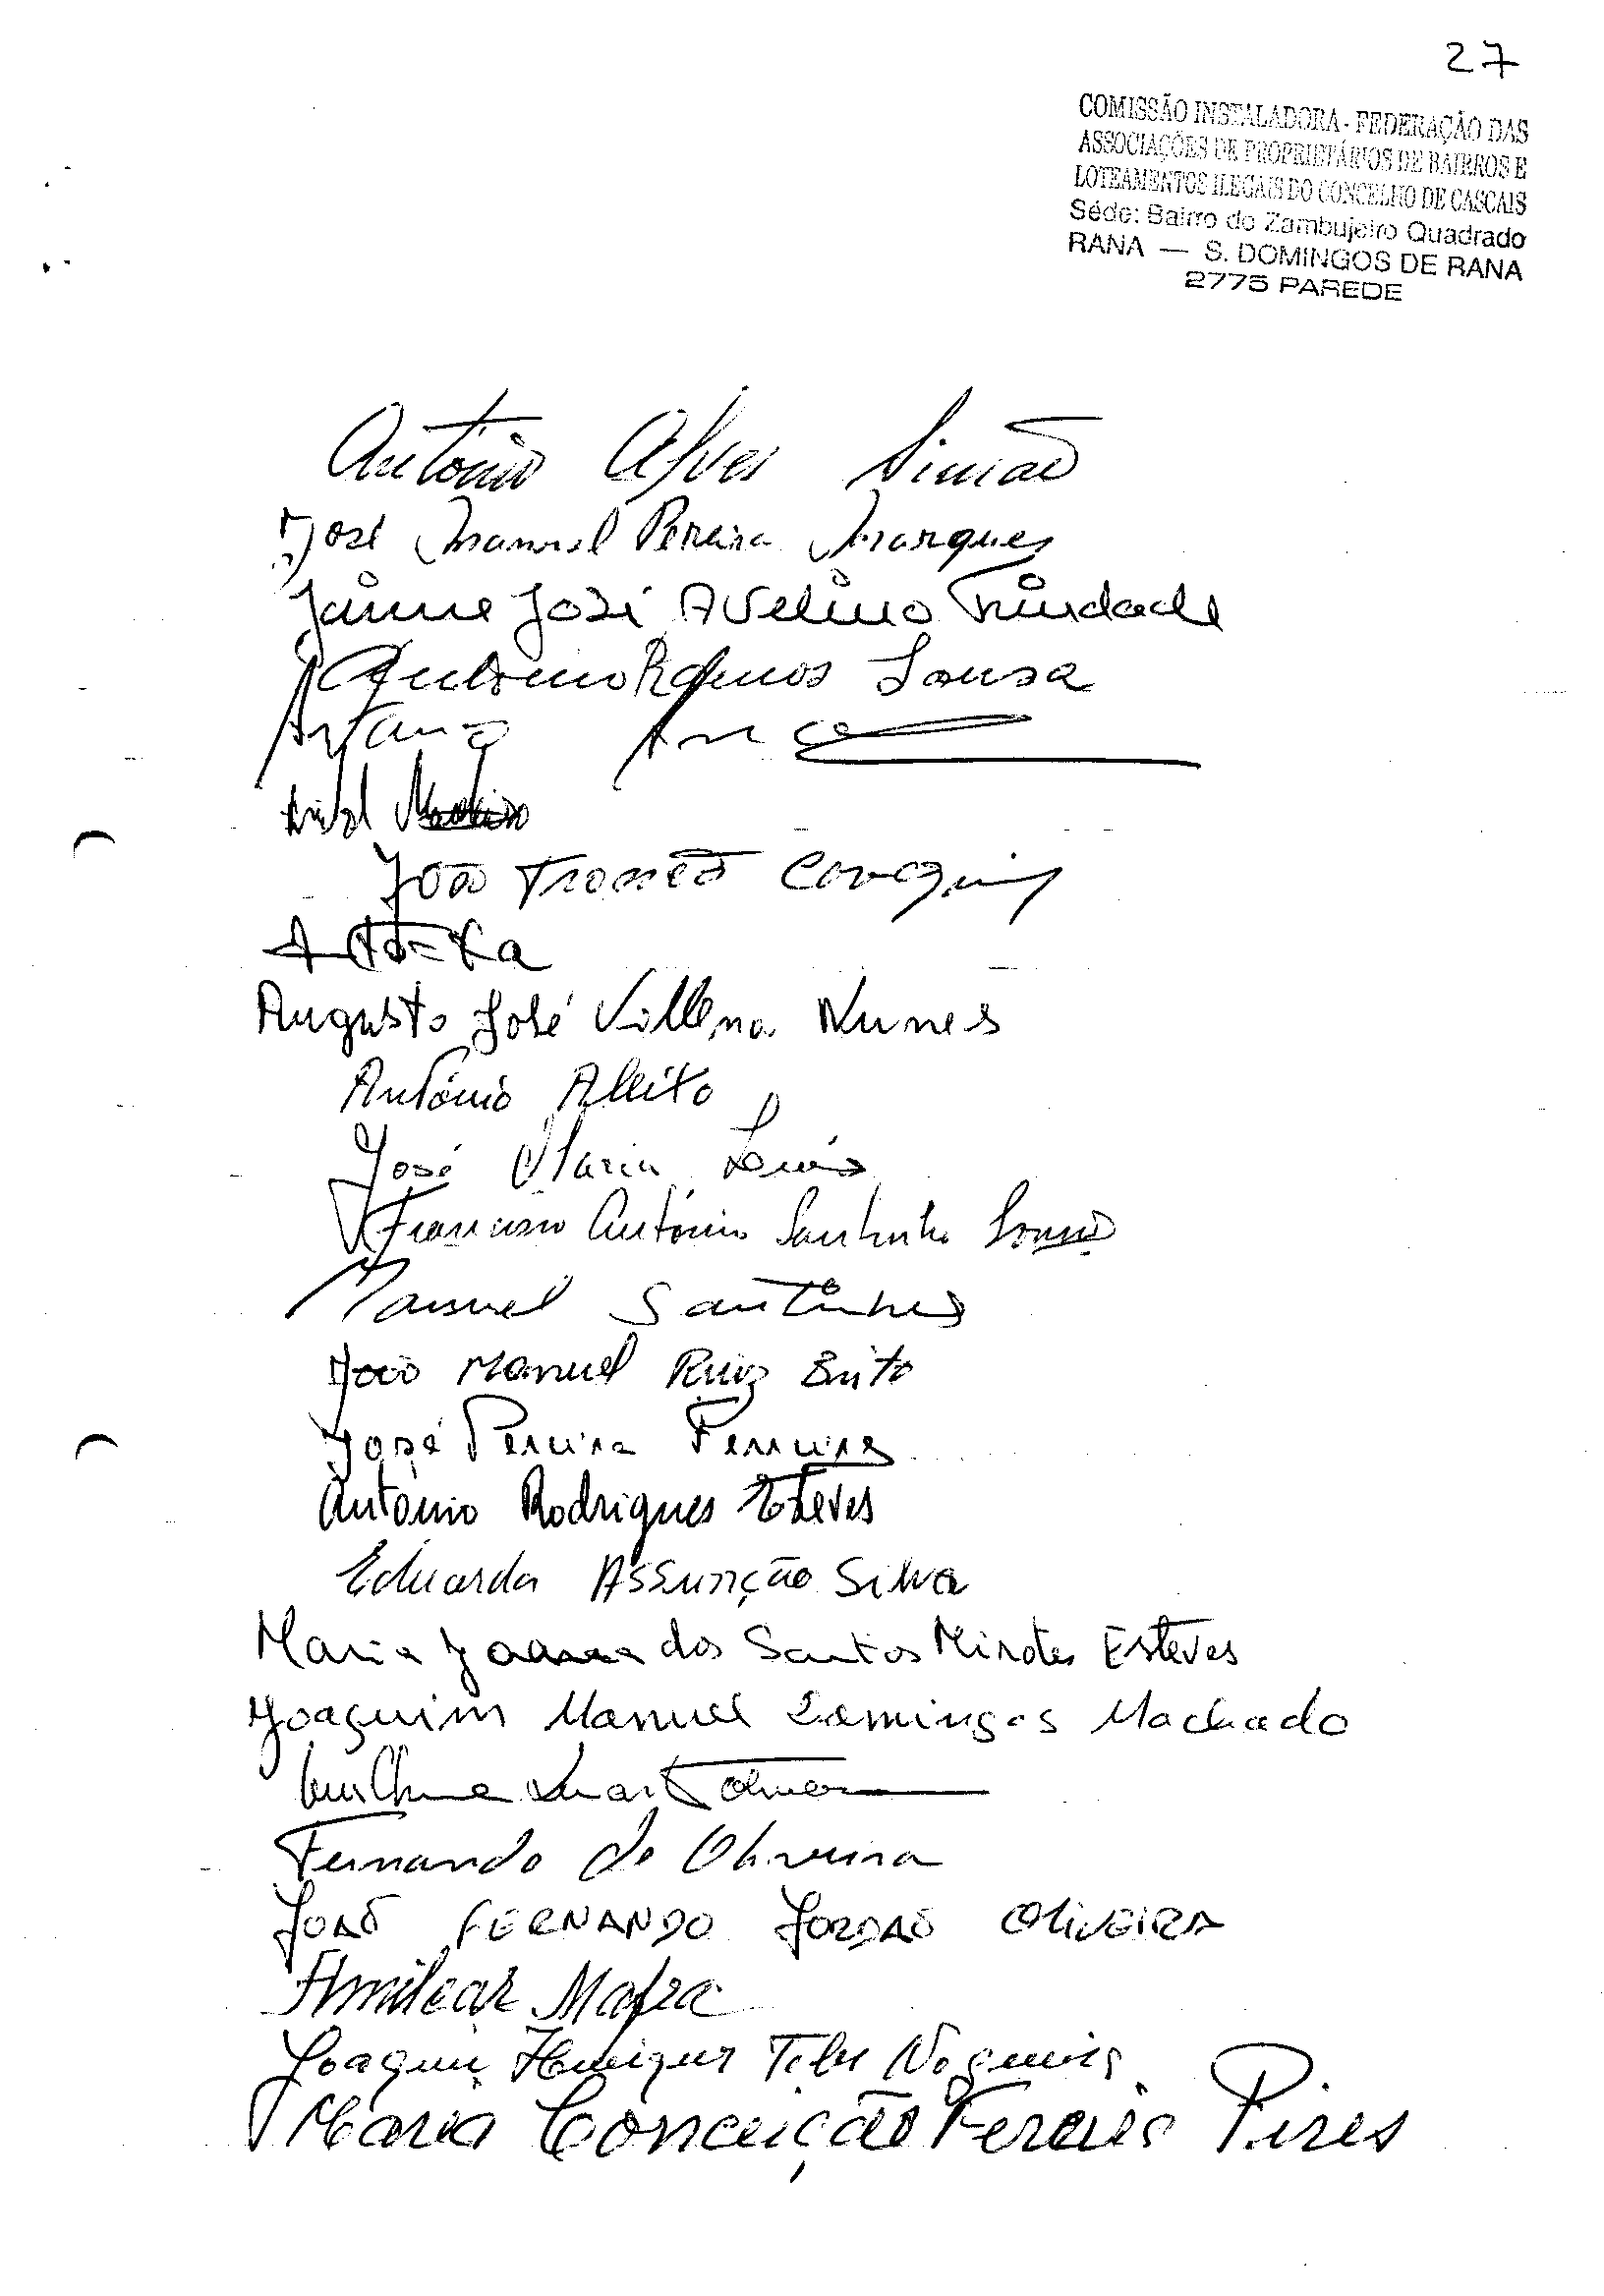 27
COMISSÃO INSTALADORA - FEDERAÇÃO DAS
ASSOCIAÇÕES DE PROPRIETÁRIOS DE BAIRROS E
LOTEAMENTOS ILEGAIS DO CONCELHO DE CASCAIS
Séde: Bairro do Zambujeiro Quadrado
RANA — S. DOMINGOS DE RANA
2775 PAREDE
António Alves Simão
José Manuel Pereira Marques
Jaime José Avelino Trindade
António Ramos Sousa
João
Augusto José Villena Nunes
António Aleixo
José Maria
Francisco António Santinho
Manuel Santinhos
João Manuel Ruiz Brito
José Pereira Ferreira
António Rodrigues Esteves
Eduarda Assunção Silva
Maria Joana dos Santos Mirotes Esteves
Joaquim Manuel Domingos Machado
Guilherme Duarte
Fernando de Oliveira
JOÃO FERNANDO JORDÃO OLIVEIRA
Amilcar Mafra
Joaquim Henrique Teles Nogueira
Maria Conceição Fereira Pires